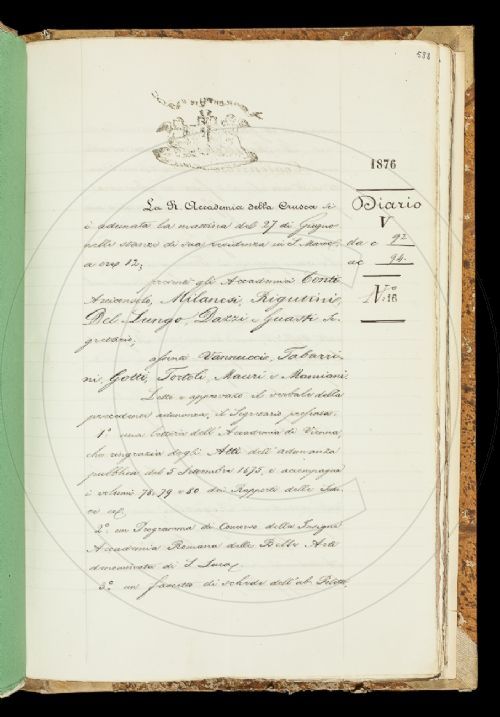 588
1876
Diario
V
da c 92
a c 94.
N.° 16
La R. Accademia della Crusca si
è adunata la mattina del 27 di Giugno
nelle stanze di sua residenza in S. Marco,
a ore 12;
presenti gli Accademici Conti
Arciconsolo, Milanesi, Rigutini,
Del Lungo, Dazzi e Guasti Se-
gretario;
assenti Vannucci, Tabarri-
ni, Gotti, Tortoli, Mauri e Mamiani.
Letto e approvato il verbale della
precedente adunanza, il Segretario
1° una lettera dell'Accademia di Vienna,
che ringrazia degli Atti dell'adunanza
pubblica del 5 Settembre 1875, e accompagna
i volumi 78. 79 e 80 dei Rapporti delle
2° un Programma di Concorso della Insigne
Accademia Romana delle Belle Arti
denominata di S. Luca;
3° un fascetto di schede dell'ab.